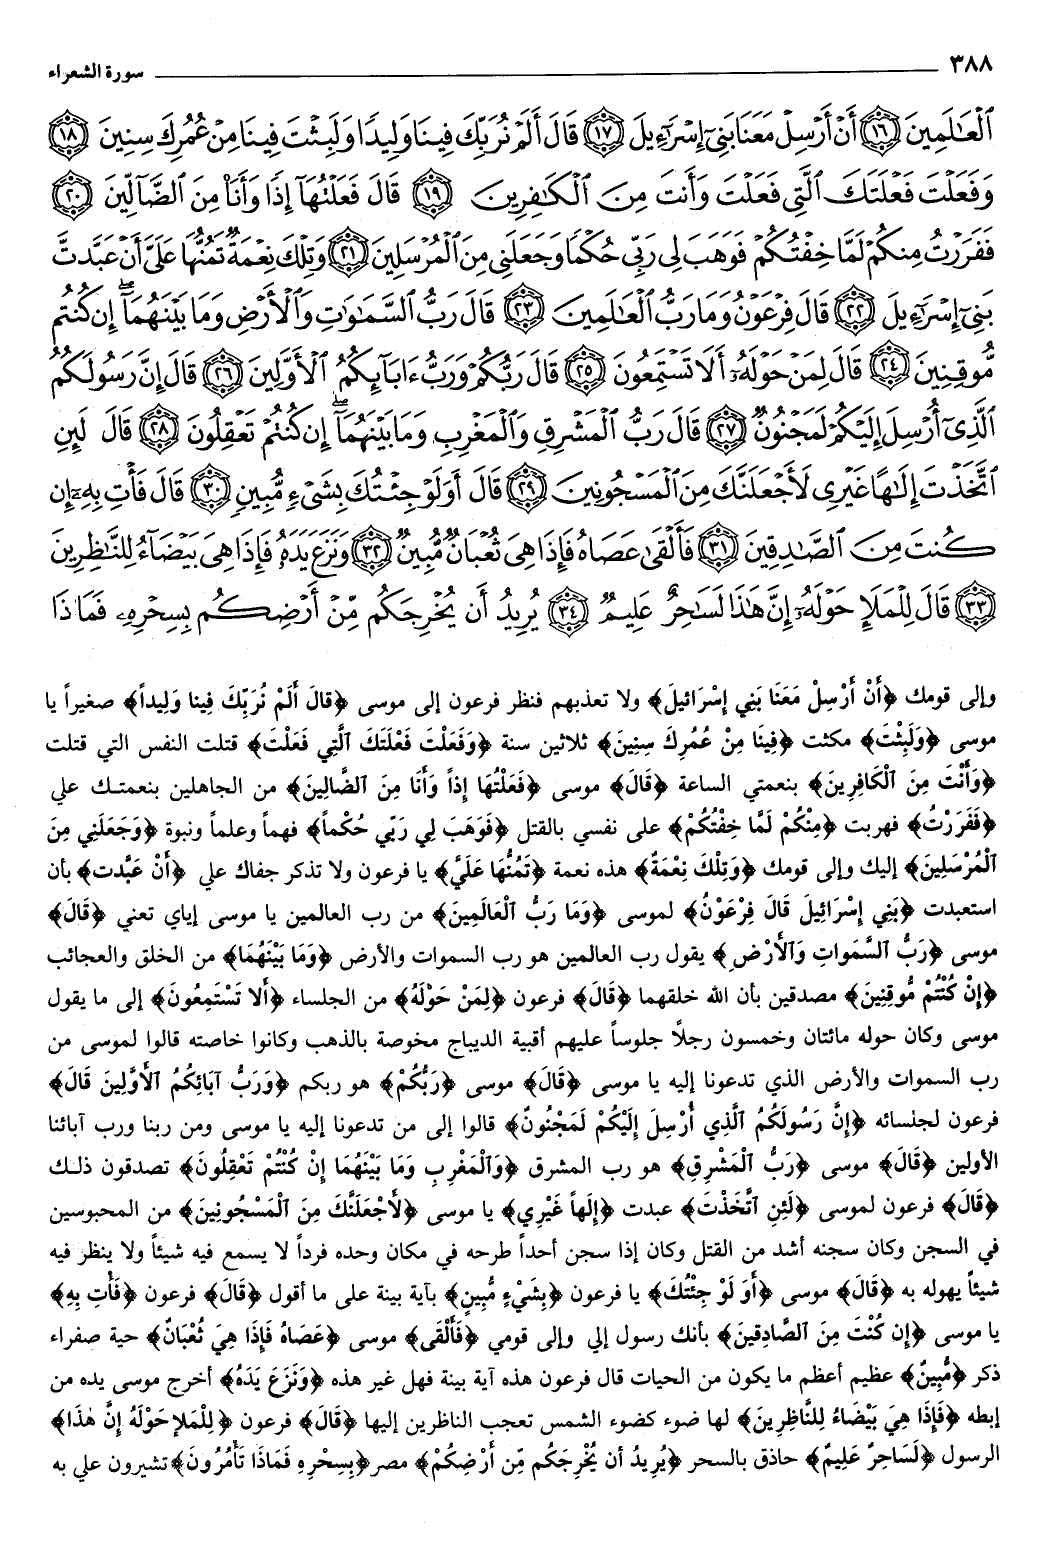 ٣٨٨ سورة الشعراء
ٱلْعَٰلَمِينَ ١٦ أَنْ أَرْسِلْ مَعَنَا بَنِىٓ إِسْرَٰٓءِيلَ ١٧ قَالَ أَلَمْ نُرَبِّكَ فِينَا وَلِيدًا وَلَبِثْتَ فِينَا مِنْ عُمُرِكَ سِنِينَ ١٨
وَفَعَلْتَ فَعْلَتَكَ ٱلَّتِى فَعَلْتَ وَأَنتَ مِنَ ٱلْكَٰفِرِينَ ١٩ قَالَ فَعَلْتُهَآ إِذًا وَأَنَا۠ مِنَ ٱلضَّآلِّينَ ٢٠
فَفَرَرْتُ مِنكُمْ لَمَّا خِفْتُكُمْ فَوَهَبَ لِى رَبِّى حُكْمًا وَجَعَلَنِى مِنَ ٱلْمُرْسَلِينَ ٢١ وَتِلْكَ نِعْمَةٌ تَمُنُّهَا عَلَىَّ أَنْ عَبَّدتَّ
بَنِىٓ إِسْرَٰٓءِيلَ ٢٢ قَالَ فِرْعَوْنُ وَمَا رَبُّ ٱلْعَٰلَمِينَ ٢٣ قَالَ رَبُّ ٱلسَّمَٰوَٰتِ وَٱلْأَرْضِ وَمَا بَيْنَهُمَآ ۖ إِن كُنتُم
مُّوقِنِينَ ٢٤ قَالَ لِمَنْ حَوْلَهُۥٓ أَلَا تَسْتَمِعُونَ ٢٥ قَالَ رَبُّكُمْ وَرَبُّ ءَابَآئِكُمُ ٱلْأَوَّلِينَ ٢٦ قَالَ إِنَّ رَسُولَكُمُ
ٱلَّذِىٓ أُرْسِلَ إِلَيْكُمْ لَمَجْنُونٌ ٢٧ قَالَ رَبُّ ٱلْمَشْرِقِ وَٱلْمَغْرِبِ وَمَا بَيْنَهُمَآ ۖ إِن كُنتُمْ تَعْقِلُونَ ٢٨ قَالَ لَئِنِ
ٱتَّخَذْتَ إِلَٰهًا غَيْرِى لَأَجْعَلَنَّكَ مِنَ ٱلْمَسْجُونِينَ ٢٩ قَالَ أَوَلَوْ جِئْتُكَ بِشَىْءٍ مُّبِينٍ ٣٠ قَالَ فَأْتِ بِهِۦٓ إِن
كُنتَ مِنَ ٱلصَّٰدِقِينَ ٣١ فَأَلْقَىٰ عَصَاهُ فَإِذَا هِىَ ثُعْبَانٌ مُّبِينٌ ٣٢ وَنَزَعَ يَدَهُۥ فَإِذَا هِىَ بَيْضَآءُ لِلنَّٰظِرِينَ
٣٣ قَالَ لِلْمَلَإِ حَوْلَهُۥٓ إِنَّ هَٰذَا لَسَٰحِرٌ عَلِيمٌ ٣٤ يُرِيدُ أَن يُخْرِجَكُم مِّنْ أَرْضِكُم بِسِحْرِهِۦ فَمَاذَا
وإلى قومك ﴿أَنْ أَرْسِلْ مَعَنَا بَنِي إِسْرَائيلَ﴾ ولا تعذبهم فنظر فرعون إلى موسى ﴿قالَ أَلَمْ نُرَبِّكَ فِينا وَلِيداً﴾ صغيراً يا
موسى ﴿وَلَبِثْتَ﴾ مكثت ﴿فِينَا مِنْ عُمُرِكَ سِنِينَ﴾ ثلاثين سنة ﴿وَفَعَلْتَ فَعْلَتَكَ ٱلَّتِي فَعَلْتَ﴾ قتلت النفس التي قتلت
﴿وَأَنْتَ مِنَ ٱلْكَافِرِينَ﴾ بنعمتي الساعة ﴿قَالَ﴾ موسى ﴿فَعَلْتُهَا إِذاً وَأَنَا مِنَ ٱلضَّالِينَ﴾ من الجاهلين بنعمتك علي
﴿فَفَرَرْتُ﴾ فهربت ﴿مِنْكُمْ لَمَّا خِفْتُكُمْ﴾ على نفسي بالقتل ﴿فَوَهَبَ لِي رَبِّي حُكْماً﴾ فهماً وعلماً ونبوة ﴿وَجَعَلَنِي مِنَ
ٱلْمُرْسَلِينَ﴾ إليك وإلى قومك ﴿وَتِلْكَ نِعْمَةٌ﴾ هذه نعمة ﴿تَمُنُّهَا عَلَيَّ﴾ يا فرعون ولا تذكر جفاك علي ﴿أَنْ عَبَّدت﴾ بأن
استعبدت ﴿بَنِي إِسْرَائِيلَ قَالَ فِرْعَوْنُ﴾ لموسى ﴿وَمَا رَبُّ ٱلْعَالَمِينَ﴾ من رب العالمين يا موسى إياي تعني ﴿قَالَ﴾
موسى ﴿رَبُّ ٱلسَّمَواتِ وَٱلأَرْضِ﴾ يقول رب العالمين هو رب السموات والأرض ﴿وَمَا بَيْنَهُمَا﴾ من الخلق والعجائب
﴿إِنْ كُنْتُمْ مُّوقِنِينَ﴾ مصدقين بأن الله خلقهما ﴿قَالَ﴾ فرعون ﴿لِمَنْ حَوْلَهُ﴾ من الجلساء ﴿أَلا تَسْتَمِعُونَ﴾ إلى ما يقول
موسى وكان حوله مائتان وخمسون رجلاً جلوساً عليهم أقبية الديباج مخوصة بالذهب وكانوا خاصته قالوا لموسى من
رب السموات والأرض الذي تدعونا إليه يا موسى ﴿قَالَ﴾ موسى ﴿رَبُّكُمْ﴾ هو ربكم ﴿وَرَبُّ آبَائِكُمُ ٱلأَوَّلِينَ قَالَ﴾
فرعون لجلسائه ﴿إِنَّ رَسُولَكُمُ ٱلَّذِي أُرْسِلَ إِلَيْكُمْ لَمَجْنُونٌ﴾ قالوا إلى من تدعونا إليه يا موسى ومن ربنا ورب آبائنا
الأولين ﴿قَالَ﴾ موسى ﴿رَبُّ ٱلْمَشْرِقِ﴾ هو رب المشرق ﴿وَٱلْمَغْرِبِ وَمَا بَيْنَهُمَا إِنْ كُنْتُمْ تَعْقِلُونَ﴾ تصدقون ذلك
﴿قَالَ﴾ فرعون لموسى ﴿لَئِنِ ٱتَّخَذْتَ﴾ عبدت ﴿إِلَهاً غَيْرِي﴾ يا موسى ﴿لأَجْعَلَنَّكَ مِنَ ٱلْمَسْجُونِينَ﴾ من المحبوسين
في السجن وكان سجنه أشد من القتل وكان إذا سجن أحداً طرحه في مكان وحده فرداً لا يسمع فيه شيئاً ولا ينظر فيه
شيئاً يهوله به ﴿قَالَ﴾ موسى ﴿أَوَ لَوْ جِئْتُكَ﴾ يا فرعون ﴿بِشَيْءٍ مُّبِينٍ﴾ بآية بينة على ما أقول ﴿قَالَ﴾ فرعون ﴿فَأْتِ بِهِ﴾
يا موسى ﴿إِن كُنْتَ مِنَ ٱلصَّادِقِينَ﴾ بأنك رسول إلي وإلى قومي ﴿فَأَلْقَى﴾ موسى ﴿عَصَاهُ فَإِذَا هِيَ ثُعْبَانٌ﴾ حية صفراء
ذكر ﴿مُّبِينٌ﴾ عظيم أعظم ما يكون من الحيات قال فرعون هذه آية بينة فهل غير هذه ﴿وَنَزَعَ يَدَهُ﴾ أخرج موسى يده من
إبطه ﴿فَإِذَا هِيَ بَيْضَاءُ لِلنَّاظِرِينَ﴾ لها ضوء كضوء الشمس تعجب الناظرين إليها ﴿قَالَ﴾ فرعون ﴿لِلْمَلإِ حَوْلَهُ إِنَّ هَذَا﴾
الرسول ﴿لَسَاحِرٌ عَلِيمٌ﴾ حاذق بالسحر ﴿يُرِيدُ أن يُخْرِجَكُم مِّن أَرْضِكُمْ﴾ مصر ﴿بِسِحْرِهِ فَمَاذَا تَأْمُرُونَ﴾ تشيرون علي به